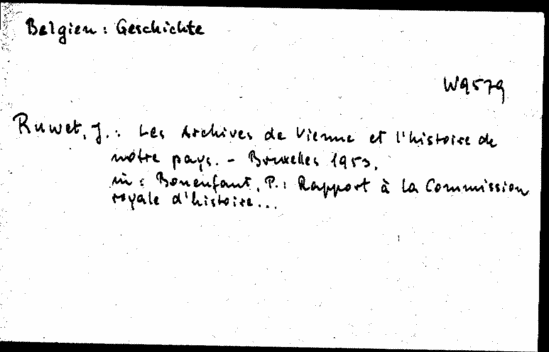 Belgien: Geschichte
W9579
Ruwet, J.: Les Archives de Vienne et l'histoire de
notre pays. - Bruxelles 1953.
in: Bonenfant, P.: Rapport à la Commission
royale d'histoire...